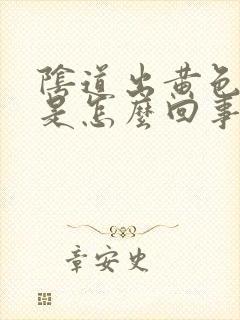 陰道出黃色
是怎麼回事
章安史